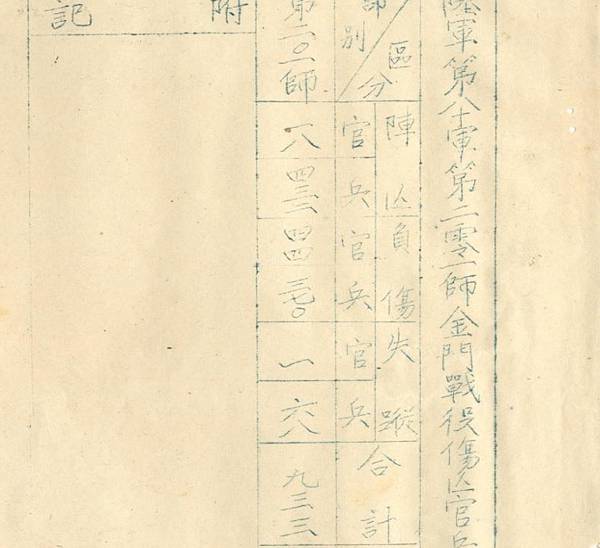 陸軍第八十軍第二零一師金門戰役傷亡官兵
區分
陣亡
負傷
失蹤
合計
部別
官
兵
官
兵
官
兵
第二〇一師
一八
四三二
四四
三七〇
一
六八
九三三
附記